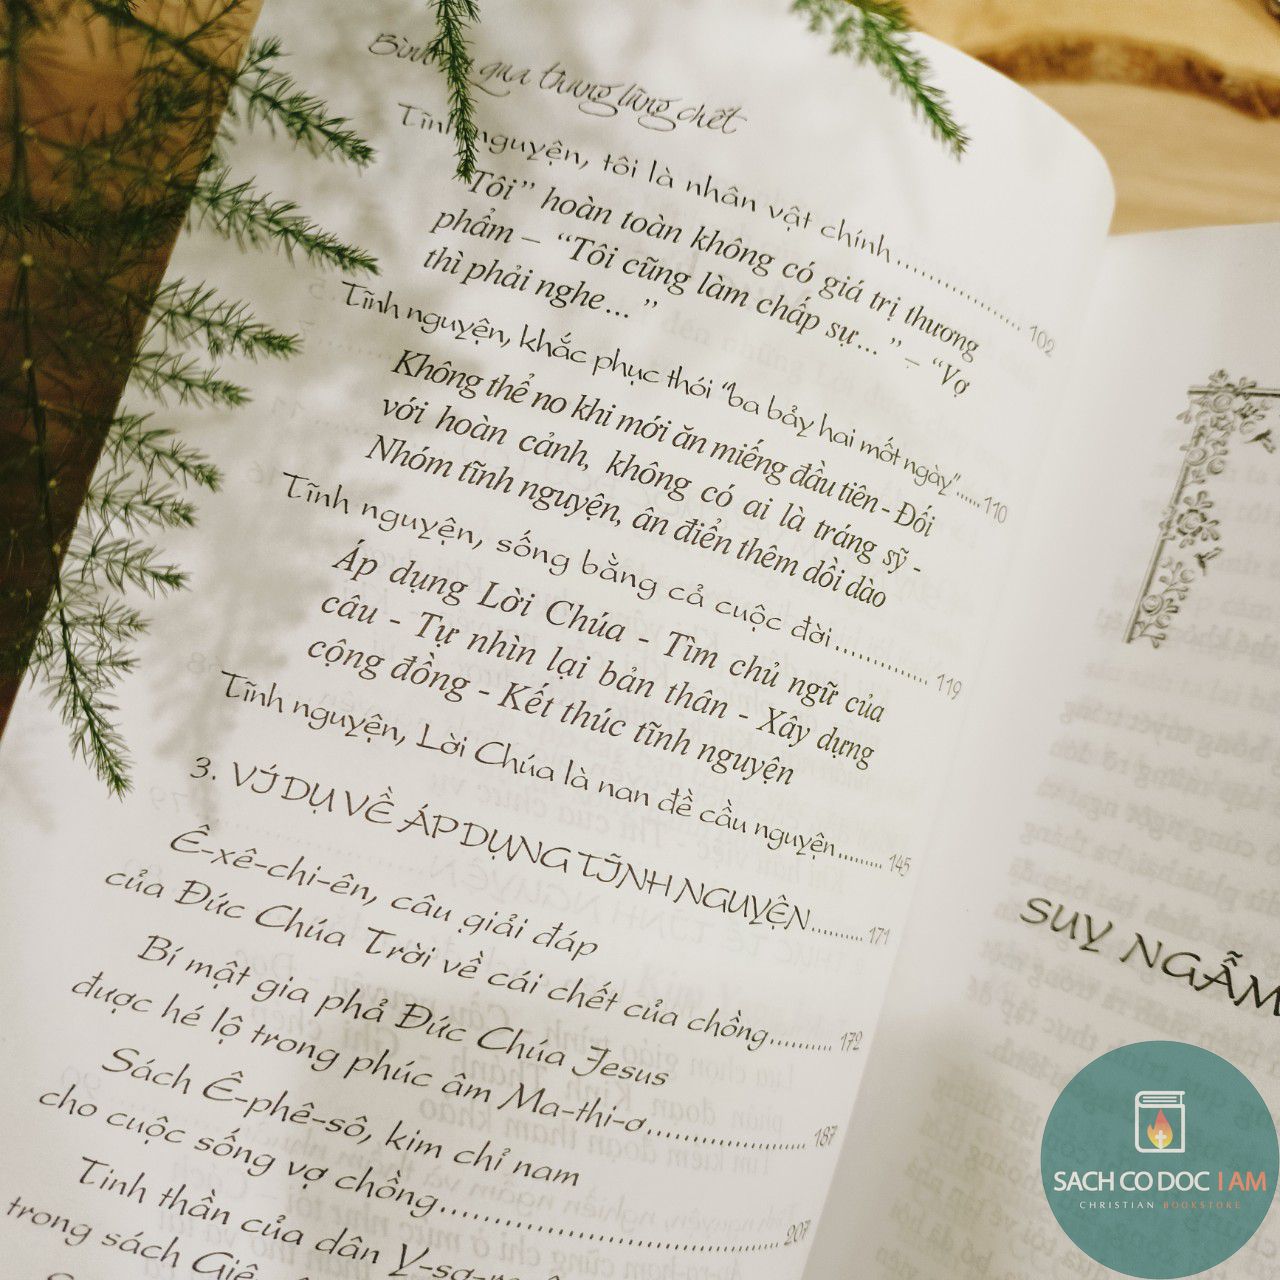 qua thung lũng chết
Tĩnh nguyện, tôi là nhân vật chính.................... 102
"Tôi" hoàn toàn không có giá trị thương
phẩm – "Tôi cũng làm chấp sự..." – "Vợ
thì phải nghe..."
Tĩnh nguyện, khắc phục thói "ba bảy hai mốt ngày"......110
Không thể no khi mới ăn miếng đầu tiên - Đối
với hoàn cảnh, không có ai là tráng sỹ -
Nhóm tĩnh nguyện, ân điển thêm dồi dào
Tĩnh nguyện, sống bằng cả cuộc đời............... 119
Áp dụng Lời Chúa - Tìm chủ ngữ của
câu - Tự nhìn lại bản thân - Xây dựng
cộng đồng - Kết thúc tĩnh nguyện
Tĩnh nguyện, Lời Chúa là nan đề cầu nguyện......... 145
3. VÍ DỤ VỀ ÁP DỤNG TĨNH NGUYỆN.......... 171
Ê-xê-chi-ên, câu giải đáp
của Đức Chúa Trời về cái chết của chồng.......... 172
Bí mật gia phả Đức Chúa Jesus
được hé lộ trong phúc âm Ma-thi-ơ.................... 187
Sách Ê-phê-sô, kim chỉ nam
cho cuộc sống vợ chồng........................................ 207
Tinh thần của dân Y-sơ-
trong sách Giê
SUY NGẪM
SACH CO DOC I AM
CHRISTIAN BOOKSTORE